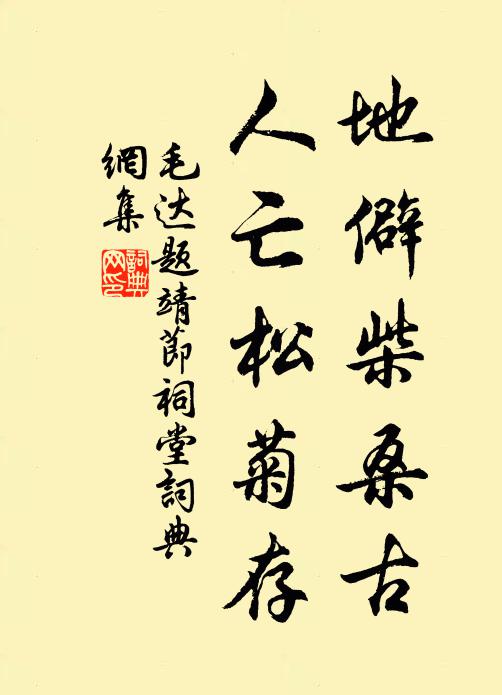 地僻柴桑古
人亡松菊存
毛达题靖節祠堂詞典
網集
詞典
网印